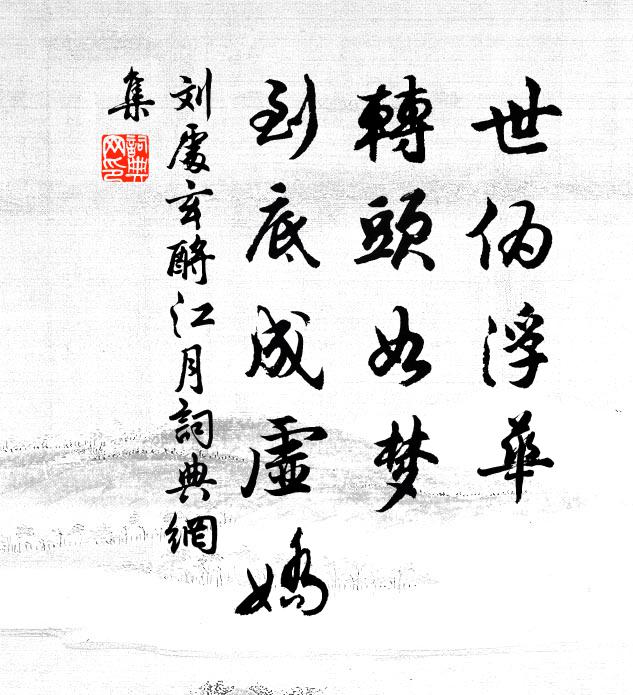 世伪浮華
轉頭如梦
到底成虛嬌
刘處玄酹江月詞典網
集
詞典
网印